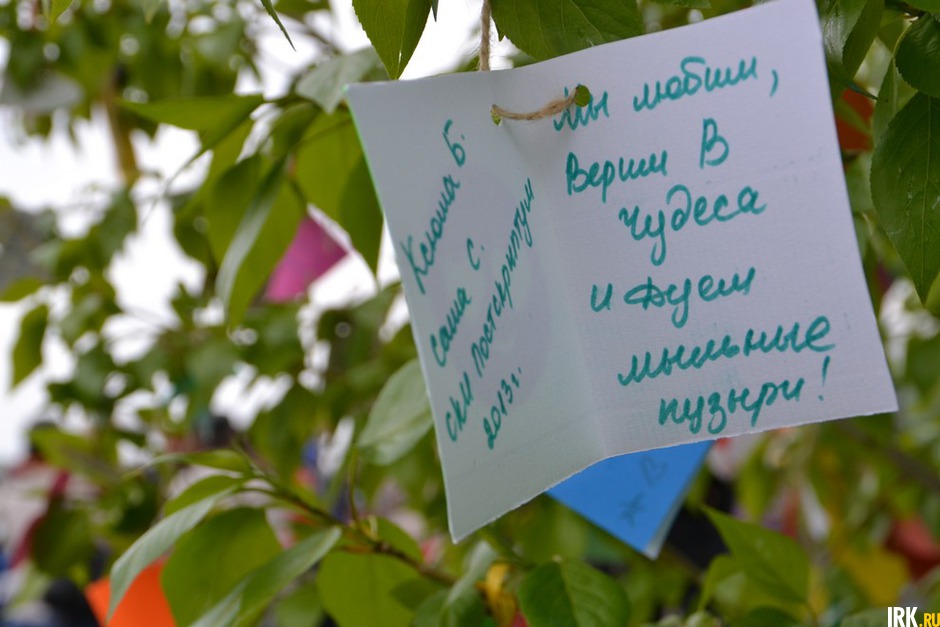 Ксюша Б.
Саша С.
СКИ Постскриптум
2013г.
Мы любим,
Верим В
Чудеса
и Дуем
мыльные
пузыри!
IRK.RU